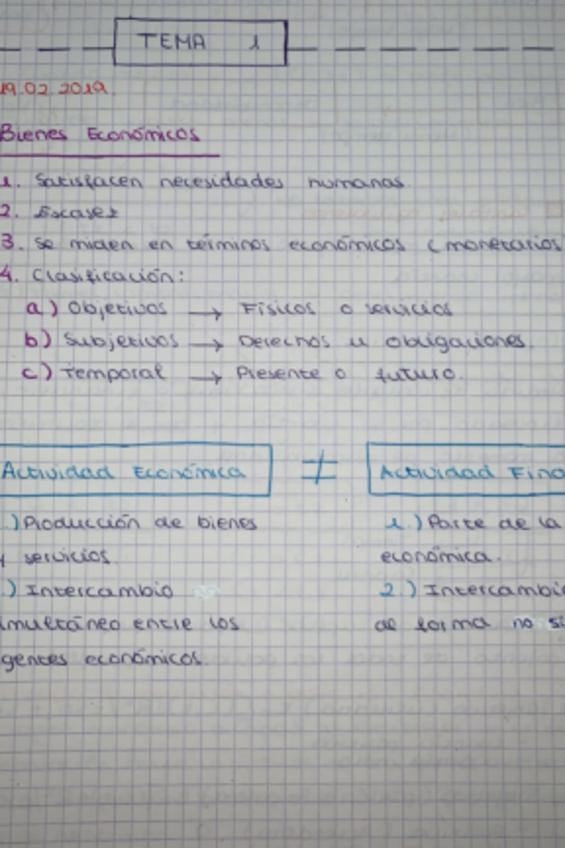 TEMA 1
19.02.2019
Bienes Económicos
1. Satisfacen necesidades humanas.
2. Escasez
3. Se miden en términos económicos (monetarios
4. Clasificación:
a) Objetivos → Físicos o servicios
b) Subjetivos → Derechos u obligaciones.
c) Temporal → Presente o futuro.
Actividad Económica ≠ Actividad Fina
.) Producción de bienes
y servicios.
.) Intercambio
imultáneo entre los
gentes económicos.
1.) Parte de la
económica.
2.) Intercambi
de forma no si